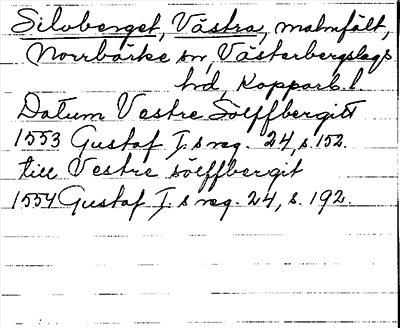 Silvberget, Västra, malmfält,
Norrbärke sn, Västerbergslags
hd, Kopparb. l
Datum Vestre Sölffbergitt
1553 Gustaf I.s reg. 24, s. 152.
till Vestre sölffbergit
1554 Gustaf I.s reg. 24, s. 192.